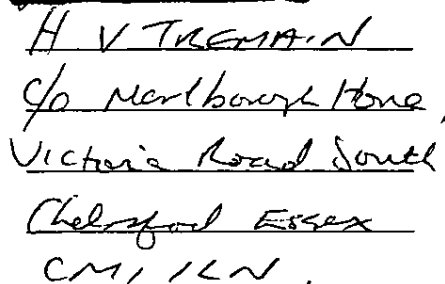 H V TREMAIN
c/o Marlborough House,
Victoria Road South
Chelmsford Essex
CM1 1LN.